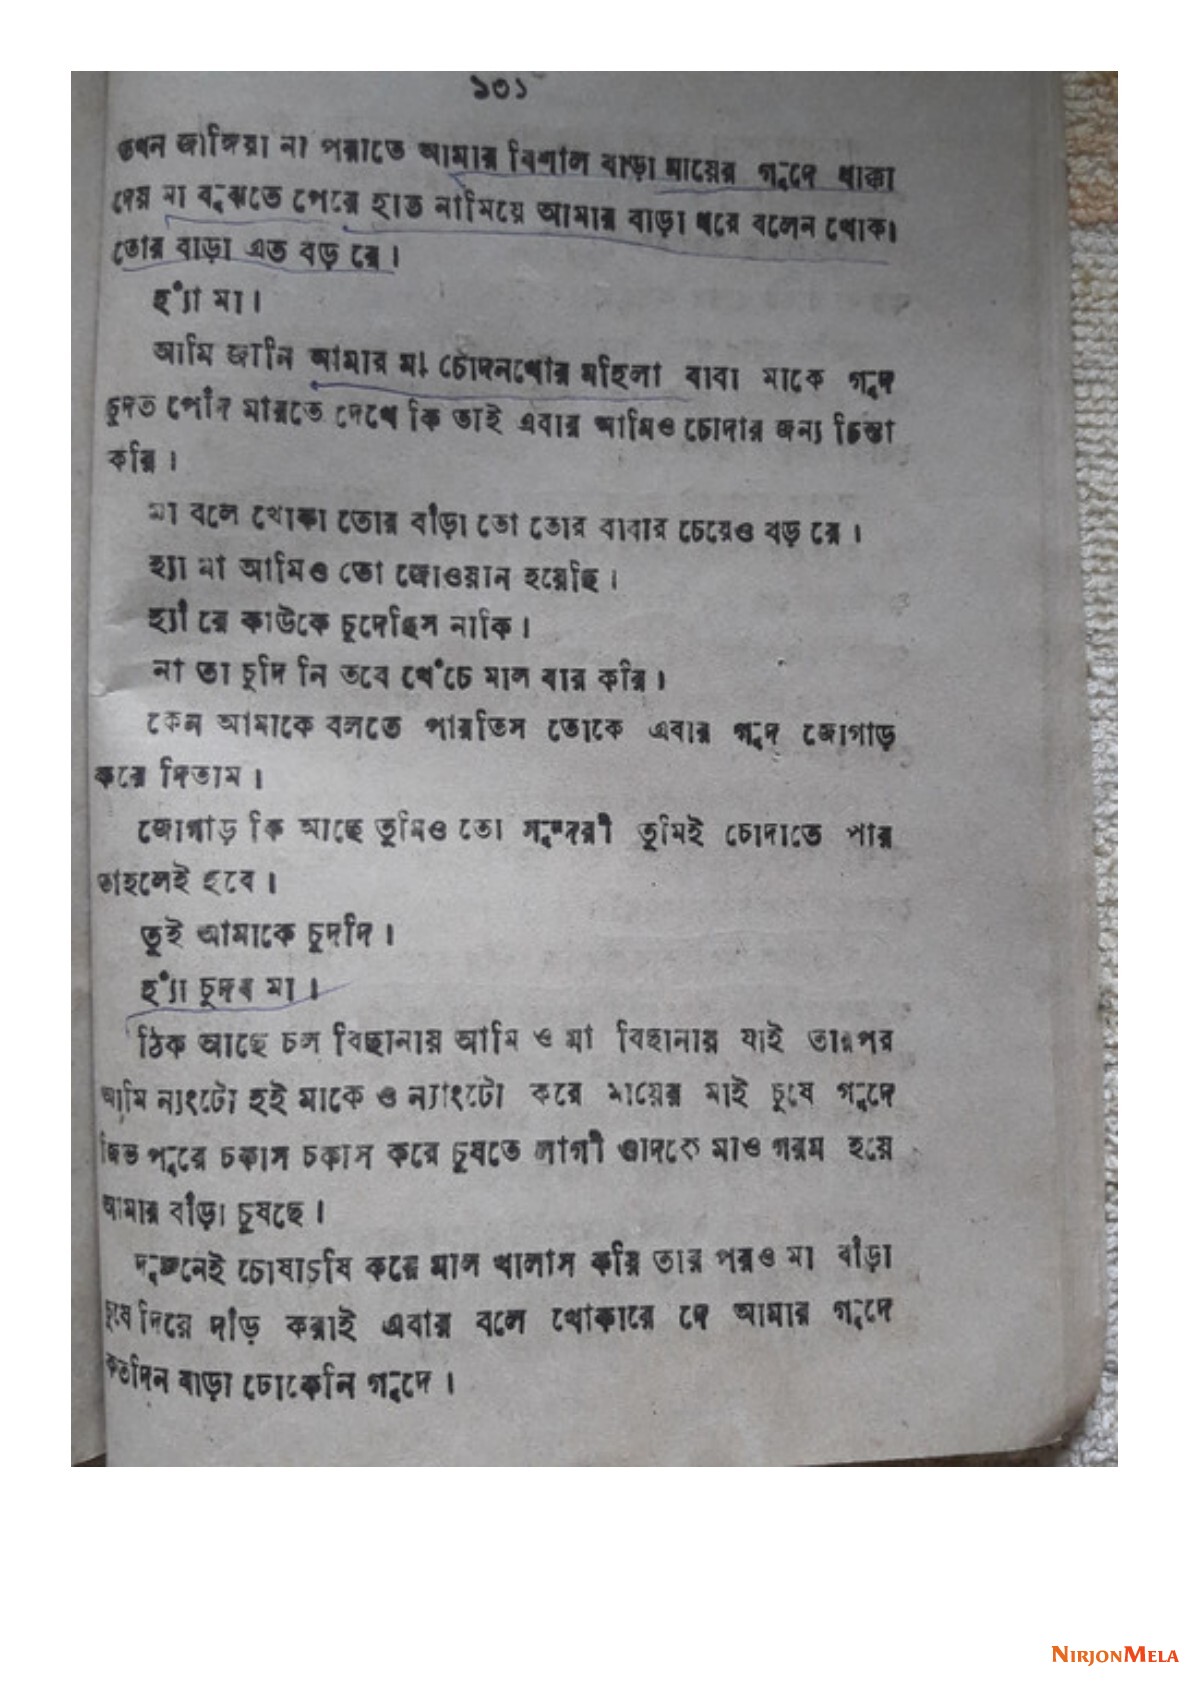 ১৩১
তখন জাঙ্গিয়া না পরাতে আমার বিশাল বাড়া মায়ের গুদে ধাক্কা
দেয় মা বুঝতে পেরে হাত নামিয়ে আমার বাড়া ধরে বলেন খোকা
তোর বাড়া এত বড় রে।
হ্যাঁ মা।
আমি জানি আমার মা চোদনখোর মহিলা বাবা মাকে গুদ
চুদত পোঁদ মারতে দেখে কি তাই এবার আমিও চোদার জন্য চিন্তা
করি।
মা বলে খোকা তোর বাঁড়া তো তোর বাবার চেয়েও বড় রে।
হ্যা মা আমিও তো জোওয়ান হয়েছি।
হ্যাঁ রে কাউকে চুদেছিস নাকি।
না তা চুদি নি তবে খেঁচে মাল বার করি।
কেন আমাকে বলতে পারতিস তোকে এবার গুদ জোগাড়
করে দিতাম।
জোগাড় কি আছে তুমিও তো সুন্দরী তুমিই চোদাতে পার
তাহলেই হবে।
তুই আমাকে চুদদি।
হ্যাঁ চুদব মা।
ঠিক আছে চল বিছানায় আমি ও মা বিছানায় যাই তারপর
আমি ন্যাংটো হই মাকে ও ন্যাংটো করে মায়ের মাই চুষে গুদে
জিভ পুরে চকাস চকাস করে চুষতে লাগী ওদিকে মাও গরম হয়ে
আমার বাঁড়া চুষছে।
দুজনেই চোষাচুষি করে মাল খালাস করি তার পরও মা বাঁড়া
চুষে দিয়ে দাঁড় করাই এবার বলে খোকারে দে আমার গুদে
কতদিন বাড়া ঢোকেনি গুদে।
NIRJONMELA